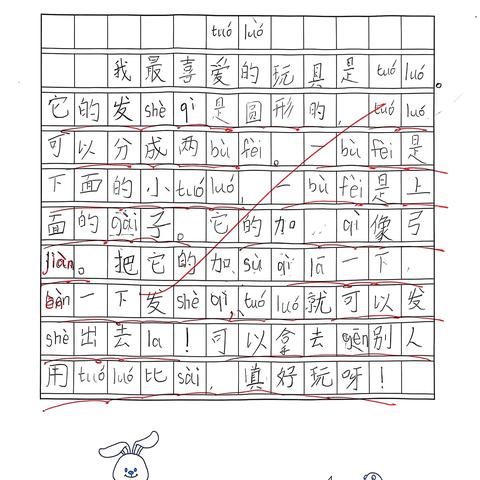 tuó luó
我最喜爱的玩具是tuó luó。
它的发shè qì是圆形的，tuó luó
可以分成两bù fèi。一bù fèi是
下面的小tuó luó，一bù fèi是上
面的gài子。它的加…qì像弓
jiàn。把它的加sù qì lā一下，
bàn一下发shè qì，tuó luó就可以发
shè出去la！可以拿去gēn别人
用tuó luó比sài，真好玩呀！